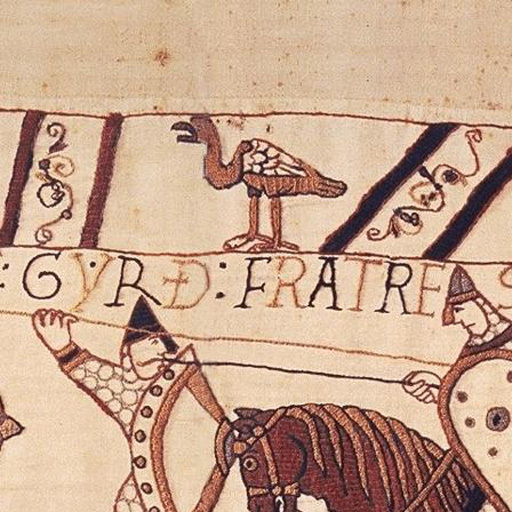 : GYRÐ: FRATRES